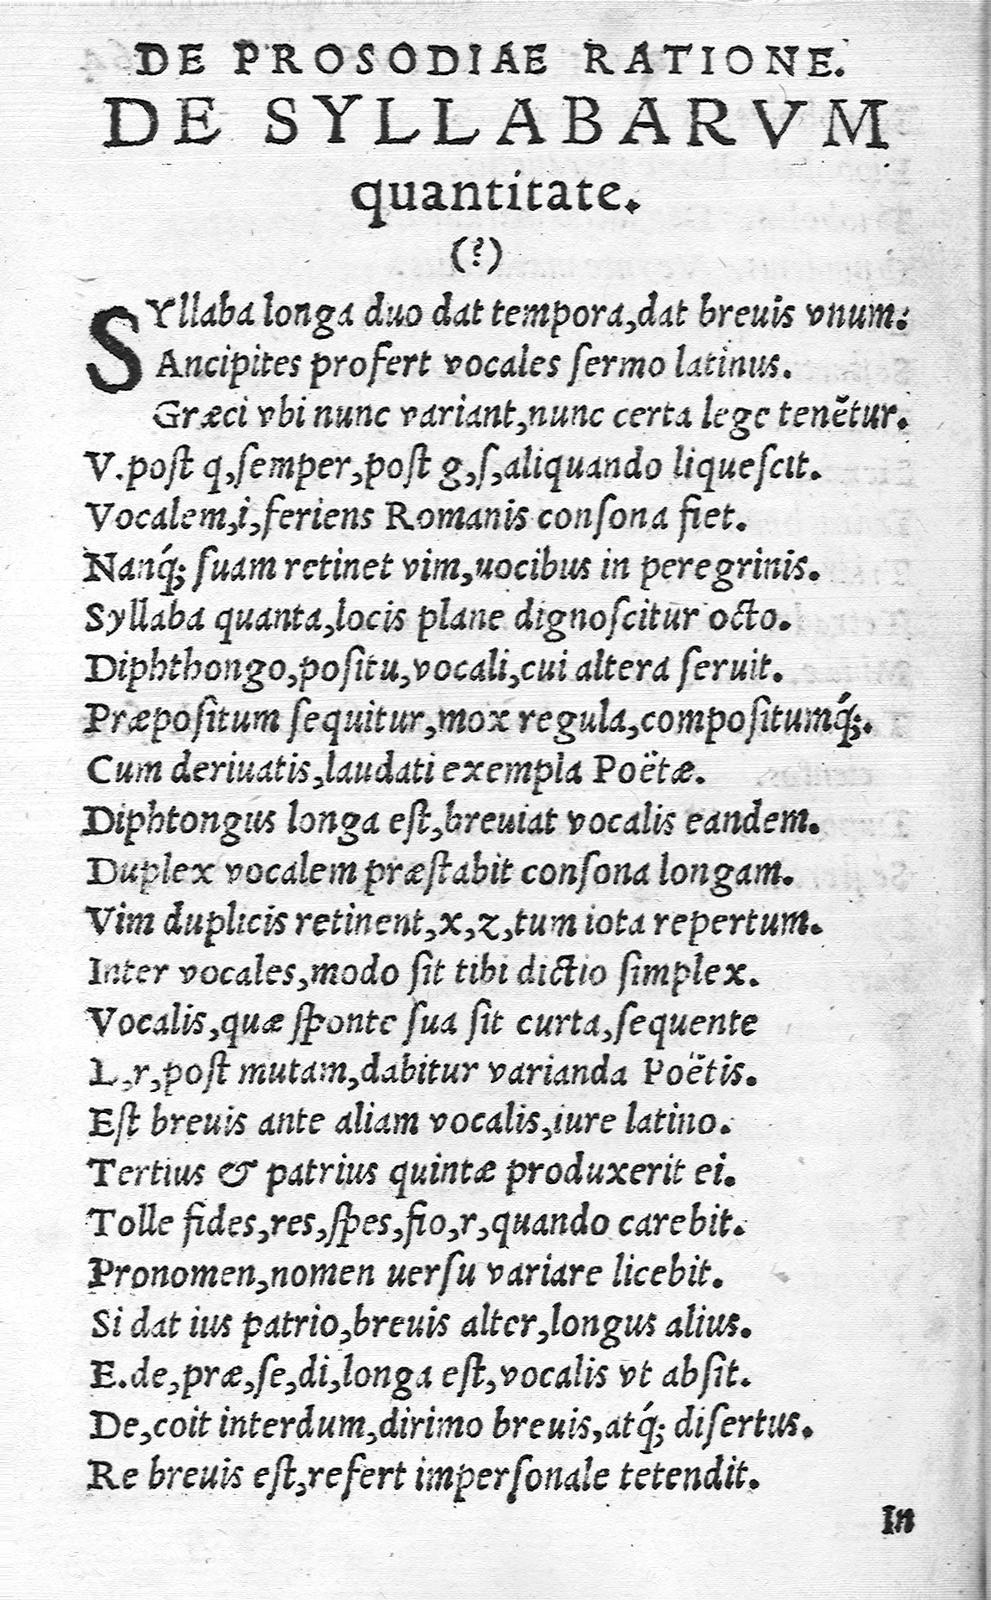 DE PROSODIAE RATIONE.
DE SYLLABARVM
quantitate.
(?)
SYllaba longa duo dat tempora,dat breuis vnum:
Ancipites profert vocales ſermo latinus.
Græci vbi nunc variant,nunc certa lege tenẽtur.
V.poſt q,ſemper,poſt g,ſ,aliquando liqueſcit.
Vocalem,i,feriens Romanis conſona fiet.
Nanq́; ſuam retinet vim,uocibus in peregrinis.
Syllaba quanta,locis plane dignoſcitur octo.
Diphthongo,poſitu,vocali,cui altera ſeruit.
Præpoſitum ſequitur,mox regula,compoſitumq́;.
Cum deriuatis,laudati exempla Poëtæ.
Diphtongus longa eſt,breuiat vocalis eandem.
Duplex vocalem præſtabit conſona longam.
Vim duplicis retinent,x,z,tum iota repertum.
Inter vocales,modo ſit tibi dictio ſimplex.
Vocalis,quæ ſponte ſua ſit curta,ſequente
L,r,poſt mutam,dabitur varianda Poëtis.
Eſt breuis ante aliam vocalis,iure latino.
Tertius & patrius quintæ produxerit ei.
Tolle fides,res,ſpes,fio,r,quando carebit.
Pronomen,nomen uerſu variare licebit.
Si dat ius patrio,breuis alter,longus alius.
E.de,præ,ſe,di,longa eſt,vocalis vt abſit.
De,coit interdum,dirimo breuis,atq́; diſertus.
Re breuis eſt,refert imperſonale tetendit.
In